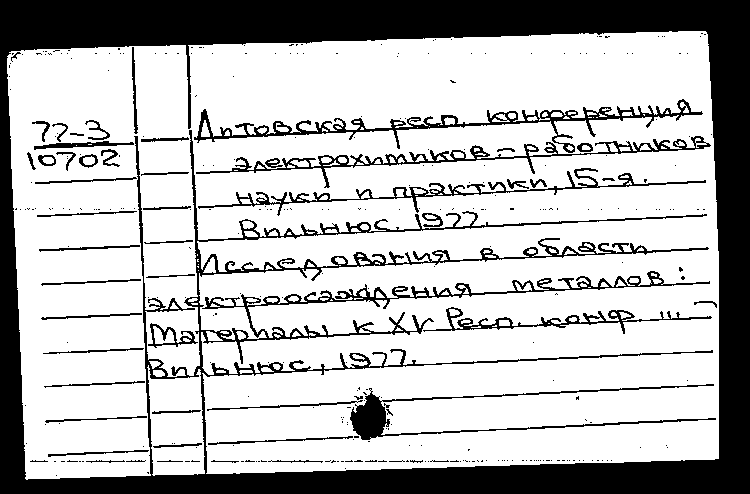 77-3
10702
Литовская респ. конференция
электрохимиков - работников
науки и практики, 15-я.
Вильнюс. 1977.
Исследования в области
электроосаждения металлов:
Материалы к XV Респ. конф. ...
Вильнюс, 1977.